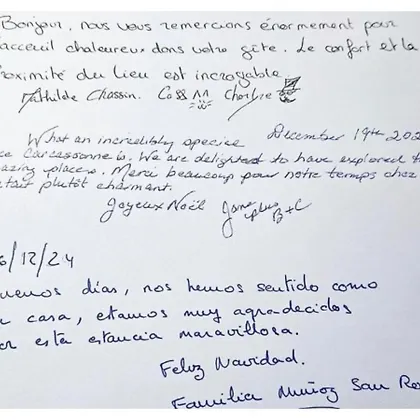 Bonjour, nous vous remercions énormement pour
acceuil chaleureux dans votre gîte. Le confort et la
roximité du lieu est incroyable
Mathilde Chassin. Charlie
What an incredibly specise December 19th 202
ce Carcassonne is. We are delighted to have explored t
azing place. Merci beaucoup pour notre temps chez
tait plutôt charmant.
Joyeux Noël Jane plus B+C
6/12/24
uenos días, nos hemos sentido como
casa, estamos muy agradecidos
or esta estancia maravillosa.
Feliz Navidad.
Familia Muñoz San Ro